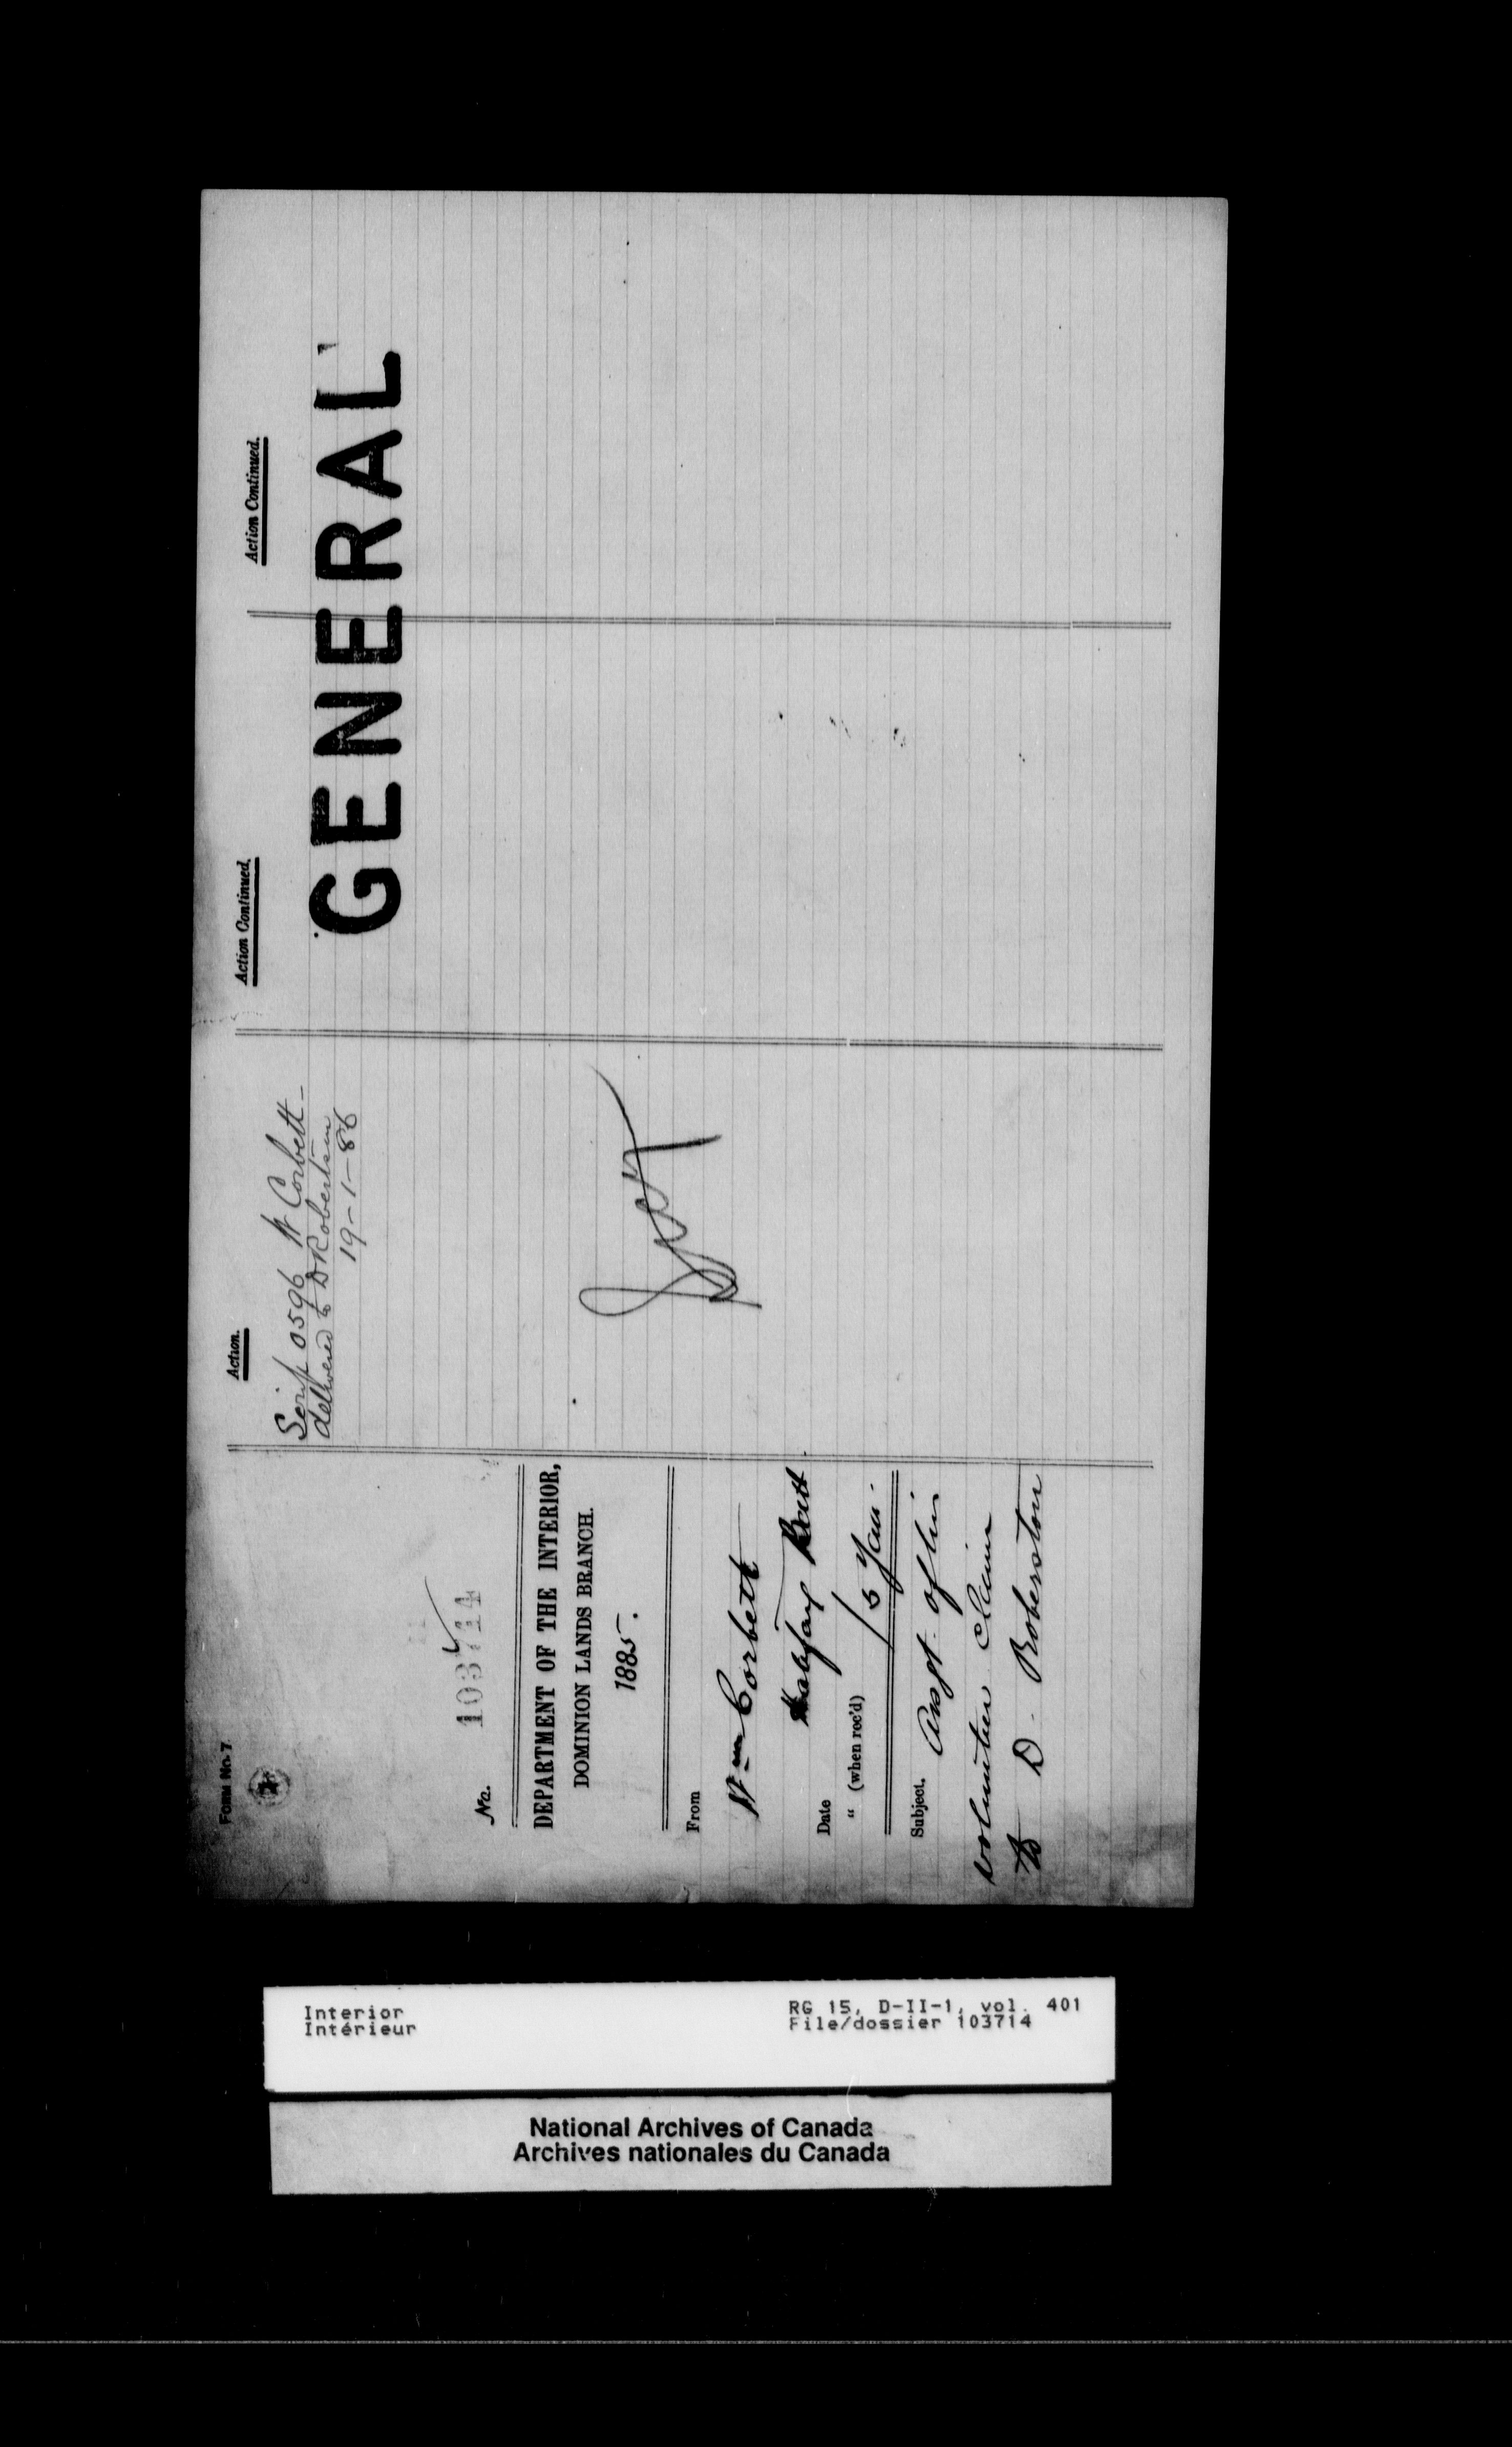 FORM No. 7
No. 103714
DEPARTMENT OF THE INTERIOR,
DOMINION LANDS BRANCH.
1885.
From
Wm Corbett
Halifax Batt
Date
" (when rec'd) 5 Jan.
Subject. Assgt. of his
volunteer claim
to D. Roberston
Action.
Scrip 0596 W Corbett -
delivered to D Robertson
19-1-86
Action Continued.
Action Continued.
GENERAL
Interior
Intérieur
RG 15, D-II-1, vol. 401
File/dossier 103714
National Archives of Canada
Archives nationales du Canada